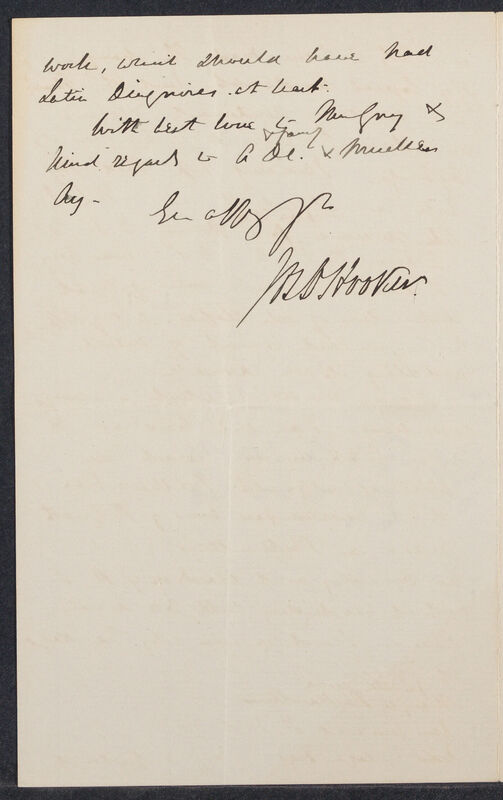 work, which should have had
Latin Diagnoses at least.
With best love to Mrs Gray &
& family
kind regards to A DC. & Mueller
Arg –
Ever affly yrs
Jos D Hooker.